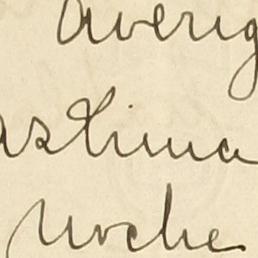 averig
astima
noche